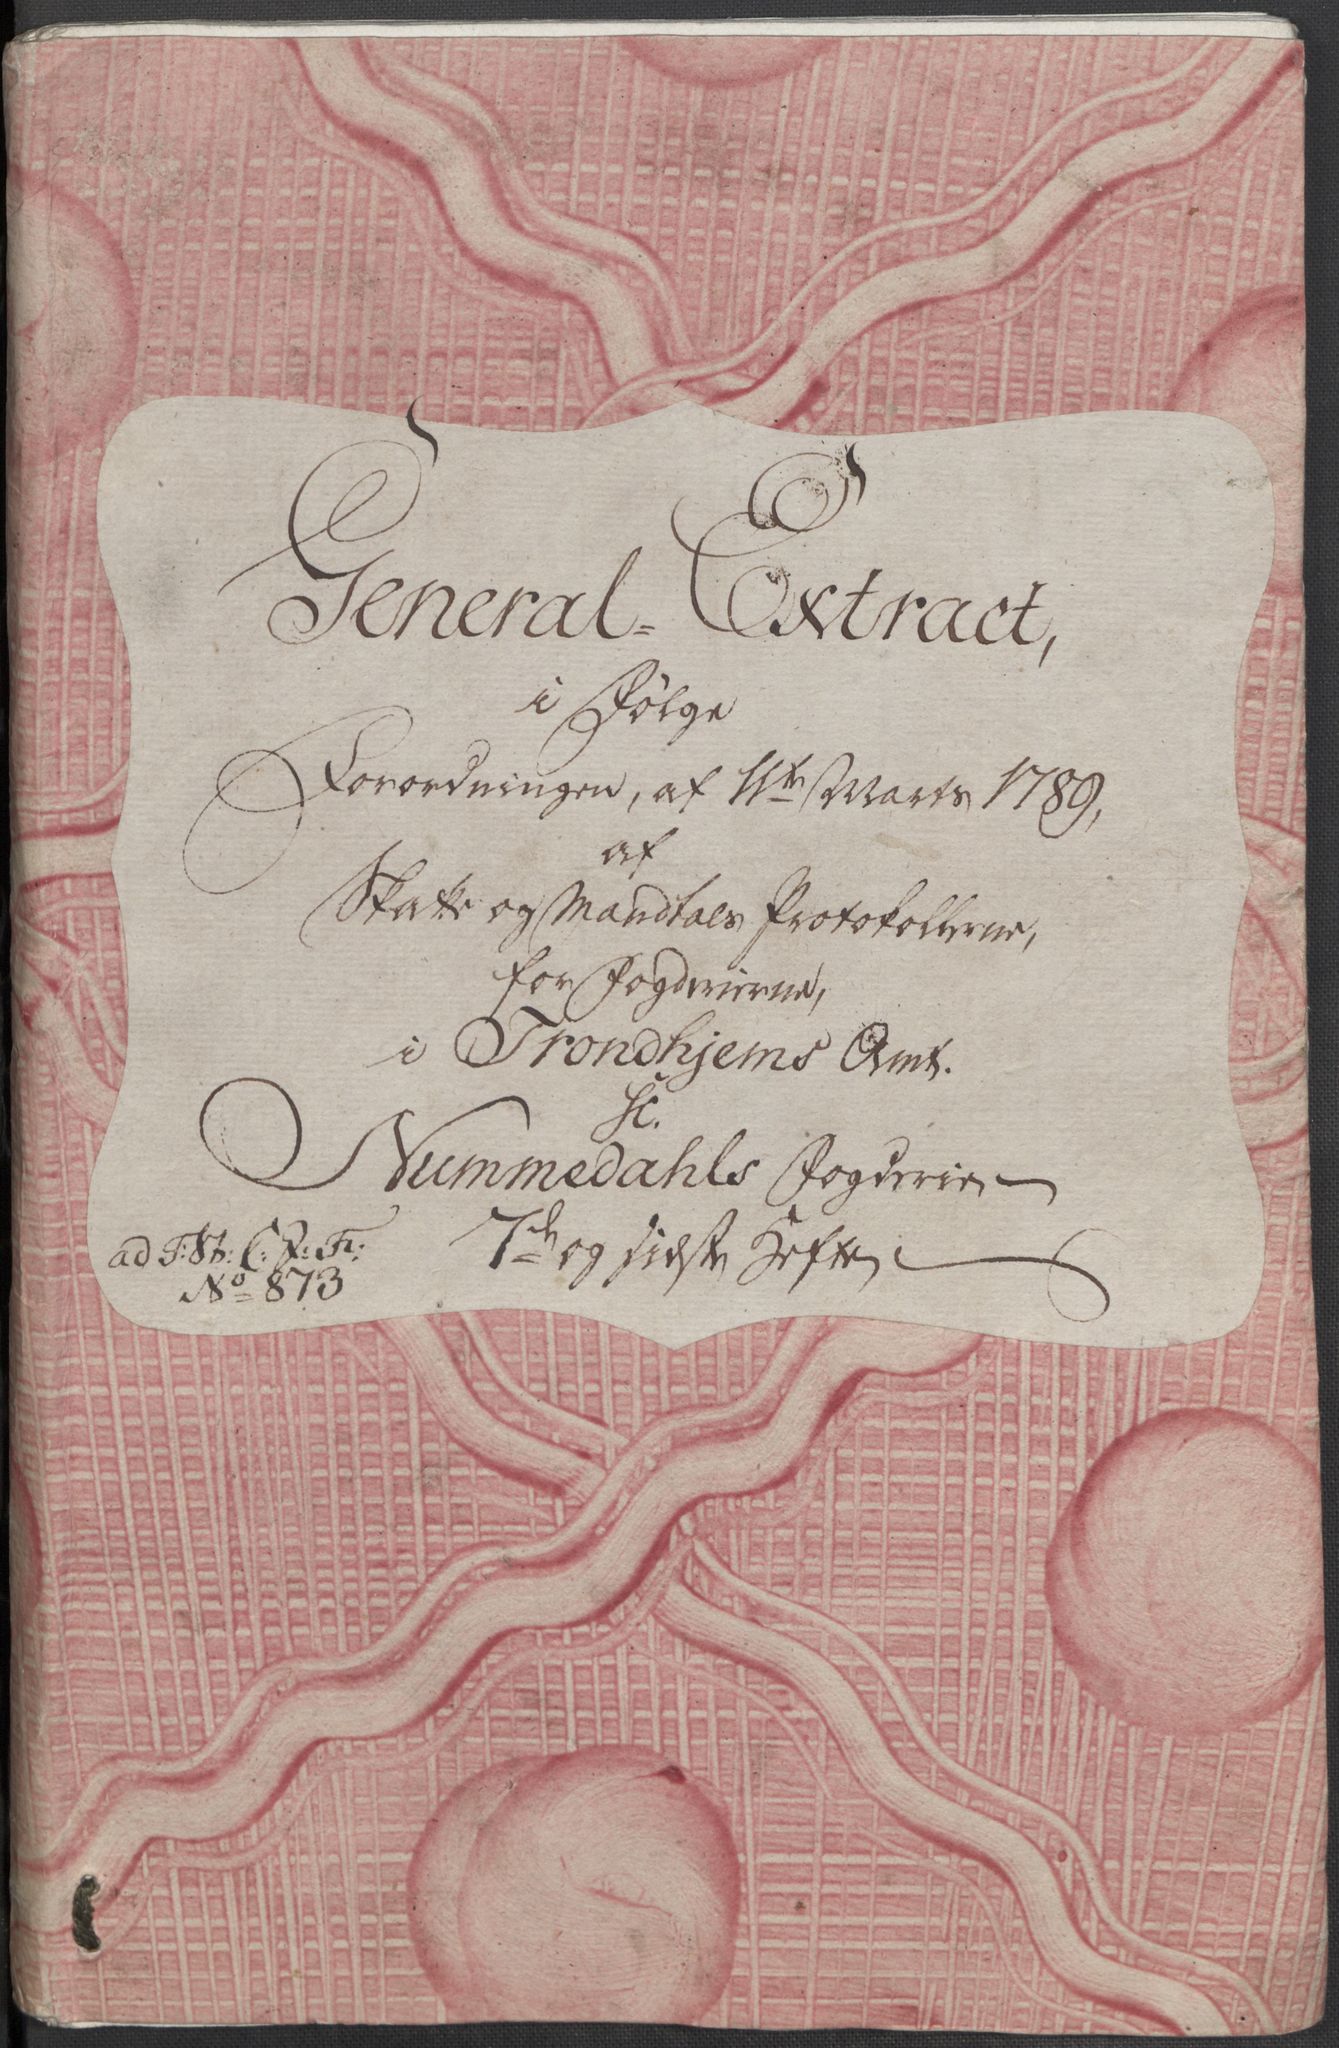 General- Extract,
i Følge
Forordningen, af 11te Marts 1789,
af
Skatte og Mandtals Protokollerne,
for Fogderierne,
i Trondhjems Amt.
sc.
Nummedahls Fogderie
7de og sidste Hefte
ad T: St: C: F: Fr:
No 873